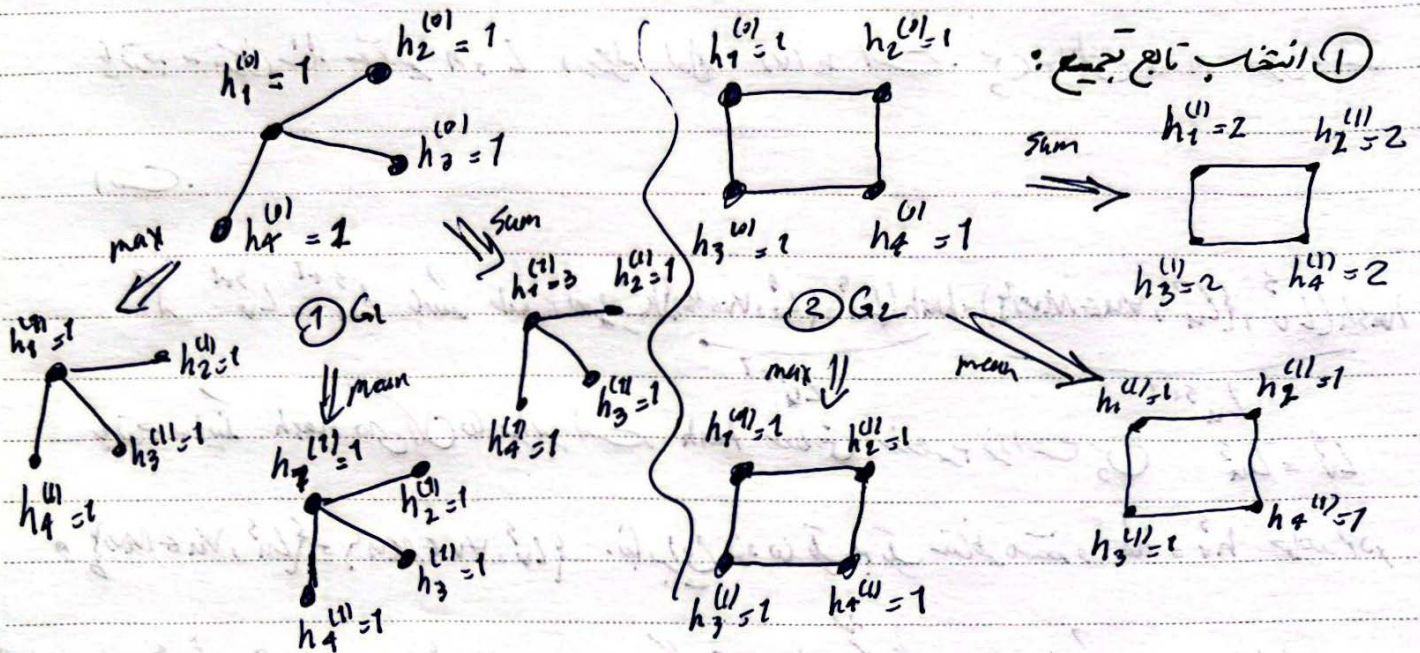 ① انتخاب تابع تجمیع:
h₁⁽⁰⁾ = 1
h₂⁽⁰⁾ = 1
h₃⁽⁰⁾ = 1
h₄⁽⁰⁾ = 1
max
sum
① G₁
mean
h₁⁽¹⁾=1
h₂⁽¹⁾=1
h₃⁽¹⁾=1
h₄⁽¹⁾=1
h₁⁽¹⁾=1
h₂⁽¹⁾=1
h₃⁽¹⁾=1
h₄⁽¹⁾=1
h₁⁽¹⁾=3
h₂⁽¹⁾=1
h₃⁽¹⁾=1
h₄⁽¹⁾=1
h₁⁽⁰⁾=1
h₂⁽⁰⁾=1
h₃⁽⁰⁾=1
h₄⁽⁰⁾=1
sum
h₁⁽¹⁾=2
h₂⁽¹⁾=2
h₃⁽¹⁾=2
h₄⁽¹⁾=2
② G₂
max
mean
h₁⁽¹⁾=1
h₂⁽¹⁾=1
h₃⁽¹⁾=1
h₄⁽¹⁾=1
h₁⁽¹⁾=1
h₂⁽¹⁾=1
h₃⁽¹⁾=1
h₄⁽¹⁾=1